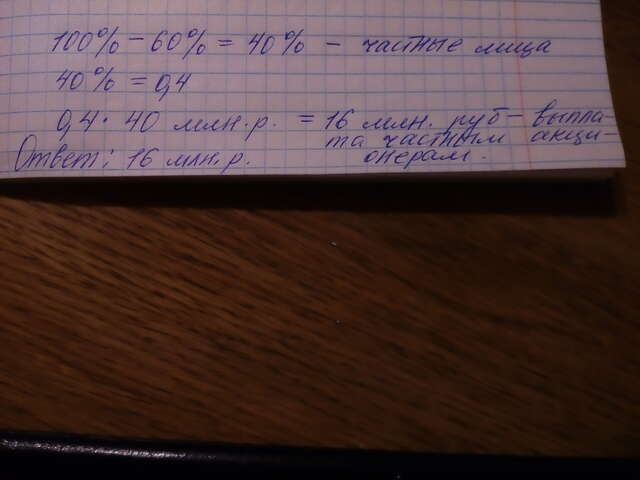 100% - 60% = 40% - частные лица
40% = 0,4
0,4 · 40 млн.р. = 16 млн. руб - выпла-
та частным акци-
Ответ: 16 млн.р. онерам.